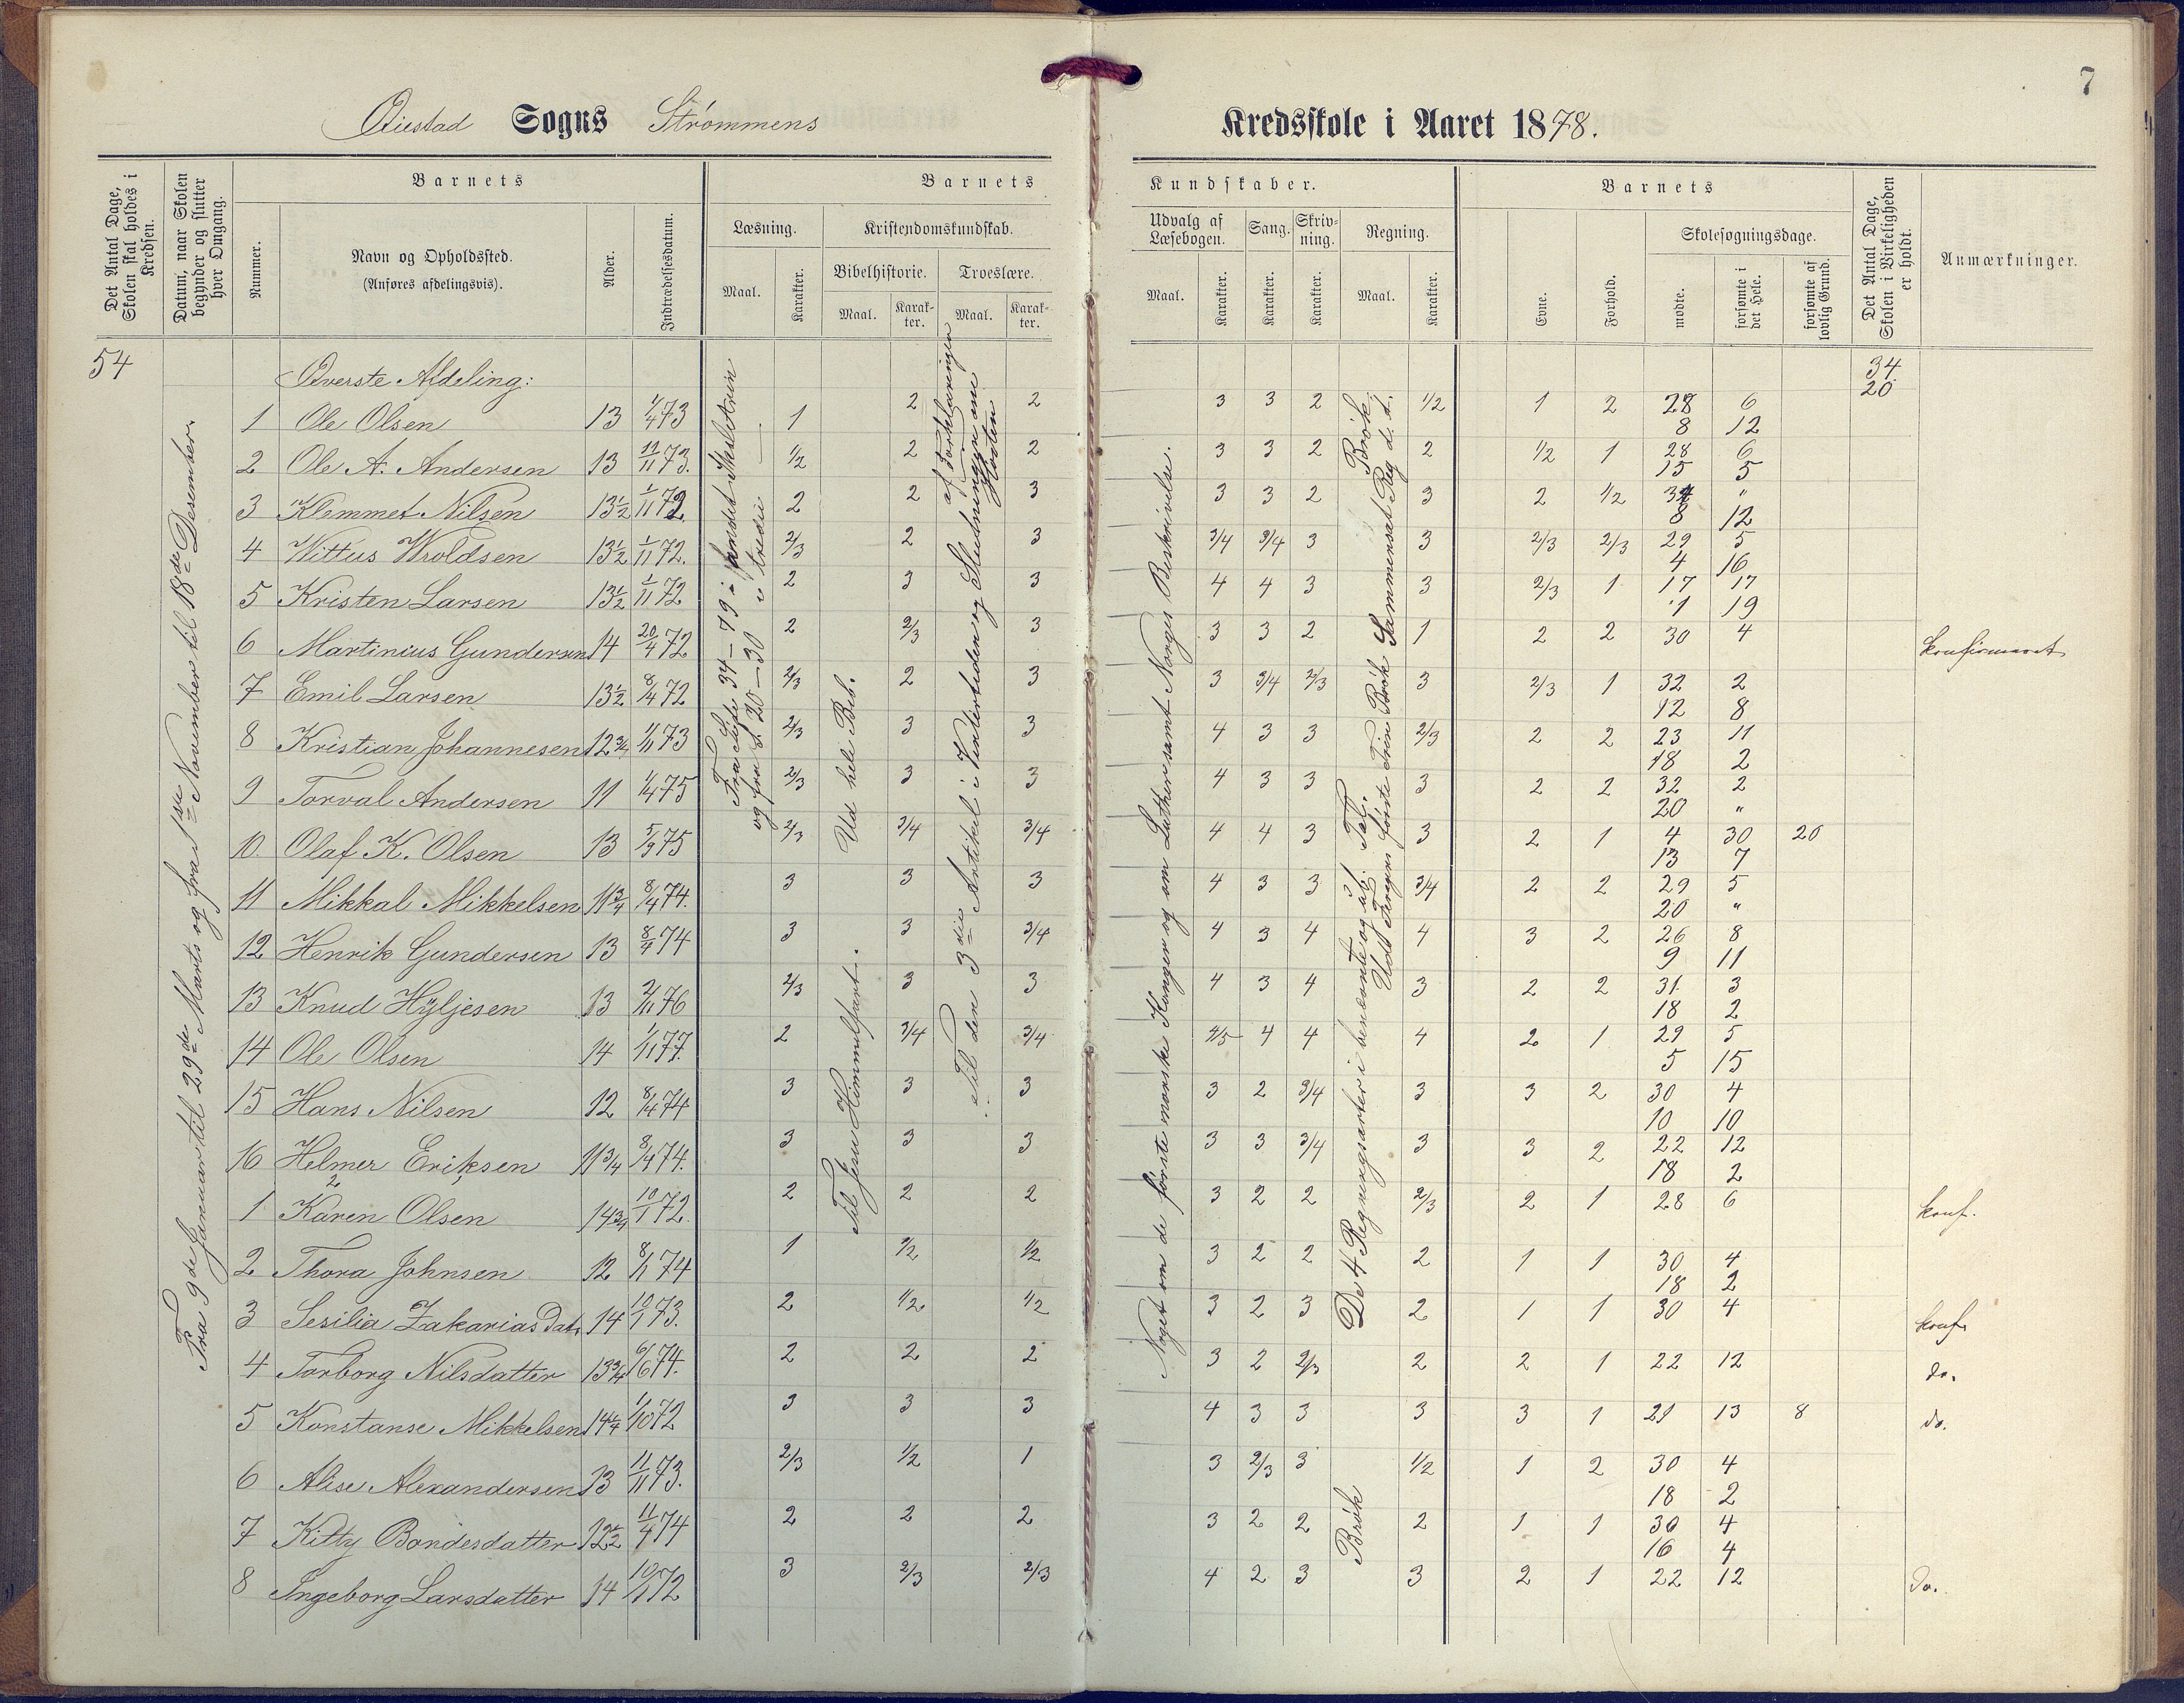 7
Øiestad Sogns Strømmens Kredsskole i Aaret 1878.
Det Antal Dage, Skolen skal holdes i Kredsen.
Datum, naar Skolen begynder og slutter hver Omgang.
Barnets
Nummer.
Navn og Opholdssted.
(Anføres afdelingsvis).
Alder.
Indtrædelsesdatum.
Barnets Kundskaber.
Læsning.
Maal.
Karakter.
Kristendomskundskab.
Bibelhistorie.
Maal.
Karakter.
Troeslære.
Maal.
Karakter.
Udvalg af Læsebogen.
Maal.
Karakter.
Sang.
Karakter.
Skrivning.
Karakter.
Regning.
Maal.
Karakter.
Barnets
Evne.
Forhold.
Skolesøgningsdage.
mødte.
forsømte i det Hele.
forsømte af lovlig Grund.
Det Antal Dage, Skolen i Virkeligheden er holdt.
Anmærkninger.
54
34
20
Fra 9de Januar til 29de Marts og fra 1ste November til 18de Desember.
Øverste Afdeling:
Fra Side 34–79 i andet
og fra S. 20–30 i tredie
Ud hele Bib.
Til Jesu Himmelfart.
Til den 3die Artikel i Vintertiden og Slutningen om Høsten
af Forklaringen
Noget om de første norske Konger og om Luther samt Norges Beskrivelse.
De 4 Regningsarter i benævnte og ub. Tal.
Brøk
Brøk
1 Ole Olsen 13 1/4 73 1 2 2 3 3 2 1/2 1 2 28 6
8 12
2 Ole A. Andersen 13 11 73. 1/2 2 2 3 3 2 2 1/2 1 28 6
15 5
3 Klemmet Nilsen 13½ 1/11 72 2 2 3 3 3 2 3 2 1/2 34 "
8 12
4 Wittus Wroldsen 13½ 1/11 72. 2/3 2 3 3/4 3/4 3 3 2/3 2/3 29 5
4 16
5 Kristen Larsen 13½ 1/11 72 2 3 3 4 4 3 3 2/3 1 17 17
1 19
6 Martinius Gundersen 14 20/4 72 2 2/3 3 3 3 2 1 2 2 30 4 konfirmeret
7 Emil Larsen 13½ 8/4 72 2/3 2 3 3 3/4 2/3 3 2/3 1 32 2
12 8
8 Kristian Johannesen 12¾ 1/11 73 2/3 3 3 4 3 3 2/3 2 2 23 11
18 2
9 Torval Andersen 11 1/4 75 2/3 3 3 4 3 3 3 2 2 32 2
20 "
10. Olaf K. Olsen 13 5/3 75 2/3 3/4 3/4 4 4 3 3 2 1 4 30 20
13 7
11 Mikkal Mikkelsen 11¾ 8/4 74. 3 3 3 4 3 3 3/4 2 2 29 5
20 "
12 Henrik Gundersen 13 8/4 74 3 3 3/4 4 3 4 4 3 2 26 8
9 11
13 Knud Hÿljesen 13 2/11 76 2/3 3 3 4 3 4 3 2 2 31 3
18 2
14 Ole Olsen 14 1/11 77. 2 3/4 3/4 4/5 4 4 4 2 1 29 5
5 15
15 Hans Nilsen 12 8/4 74 3 3 3 3 2 3/4 3 3 2 30 4
10 10
16 Helmer Eriksen 11¾ 8/4 74. 3 3 3 3 3 3/4 3 3 2 22 12
18 2
1 Karen Olsen 14¾ 10/1 72. 2 2 2 3 2 2 2/3 2 1 28 6 konf.
2 Thora Johnsen 12 8/1 74 1 1/2 1/2 3 2 2 2 1 1 30 4
18 2
3 Sesilia Zakarias Datr 14 10/1 73. 2 1/2 1/2 3 2 3 2 1 1 30 4 konf.
4 Torborg Nilsdatter 13¾ 6/6 74. 2 2 2 3 2 2/3 2 2 1 22 12 do.
5 Konstanse Mikkelsen 14¼ 1/10 72 3 3 3 4 3 3 3 3 1 21 13 8 do.
6 Alise Alexandersen 13 11/11 73. 2/3 1/2 1 3 2/3 3 1/2 1 2 30 4
18 2
7 Kitty Bondesdatter 12½ 11/4 74 2 2 2 3 2 2 2 1 1 30 4
16 4
8 Ingeborg Larsdatter 14 10/1 72 3 2/3 2/3 4 2 3 3 2 1 22 12 do.